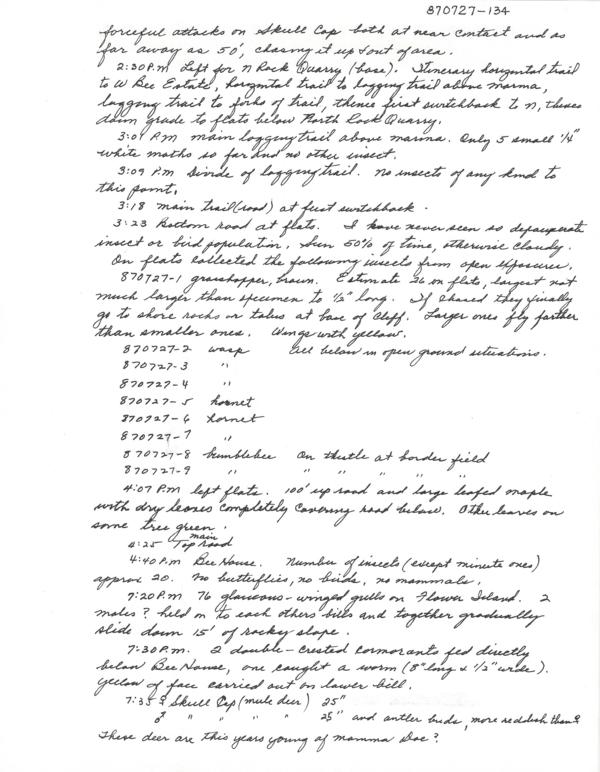 870727-134
forceful attacks on Skull Cap both at near contact and as
far away as 50', chasing it up & out of area.
2:30 P.M. Left for N Rock Quarry (base). Itinerary horizontal trail
to W Bee Estate, horizontal trail to logging trail above marina,
logging trail to forks of trail, thence first switchback to N, thence
down grade to flats below North Rock Quarry.
3:01 P.M. main logging trail above marina. Only 5 small 1/4"
white moths so far and no other insect.
3:09 P.M. Divide of logging trail. No insects of any kind to
this point.
3:18 main trail (road) at first switchback.
3:23 Bottom road at flats. I have never seen so depauperate
insect or bird population. Sun 50% of time, otherwise cloudy.
On flats collected the following insects from open exposures.
870727-1 grasshopper, brown. Estimate 26 on flats, largest not
much larger than specimen to 1/2" long. If chased they finally
go to shore rocks or talus at base of cliff. Larger ones fly farther
than smaller ones. Wings with yellow.
870727-2 wasp All below in open ground situations.
870727-3 "
870727-4 "
870727-5 hornet
870727-6 hornet
870727-7 "
870727-8 bumblebee On thistle at border field
870727-9 " " " " "
4:07 P.M. left flats. 100' up road and large leafed maple
with dry leaves completely covering road below. Other leaves on
some tree green.
4:25 Top main road
4:40 P.M. Bee House. Number of insects (except minute ones)
approx 20. No butterflies, no birds, no mammals.
7:20 P.M. 76 glaucous-winged gulls on Flower Island. 2
males? held on to each others bills and together gradually
slide down 15' of rocky slope.
7:30 P.M. 2 double-crested cormorants fed directly
below Bee House, one caught a worm (8" long & 1/2" wide).
Yellow of face carried out on lower bill.
7:35 ♀ Skull Cap (mule deer) 25"
♂ " " " " 25" and antler buds, more reddish than ♀
These deer are this years young of mamma Doe?